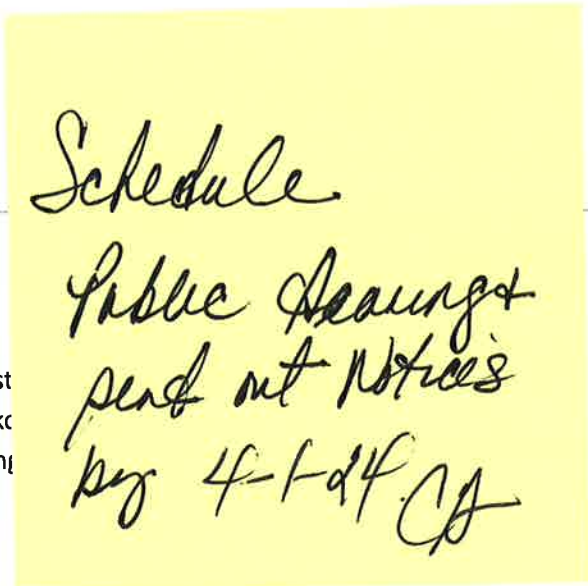 Schedule
Public Hearing &
send out Notices
by 4-1-24
st